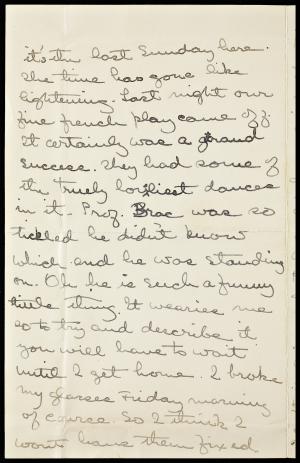 it's the last Sunday here.
The time has gone like
lightening. Last night our
fine french play came off.
It certainly was a grand
success. They had some of
the truely lovliest dances
in it. Prof. Brac was so
tickled he didn't know
which end he was standing
on. Oh he is such a funny
little thing. It wearies me
so to try and describe it
you will have to wait
until I get home. I broke
my glasses Friday morning
of cource. So I think I
wont have them fixed.